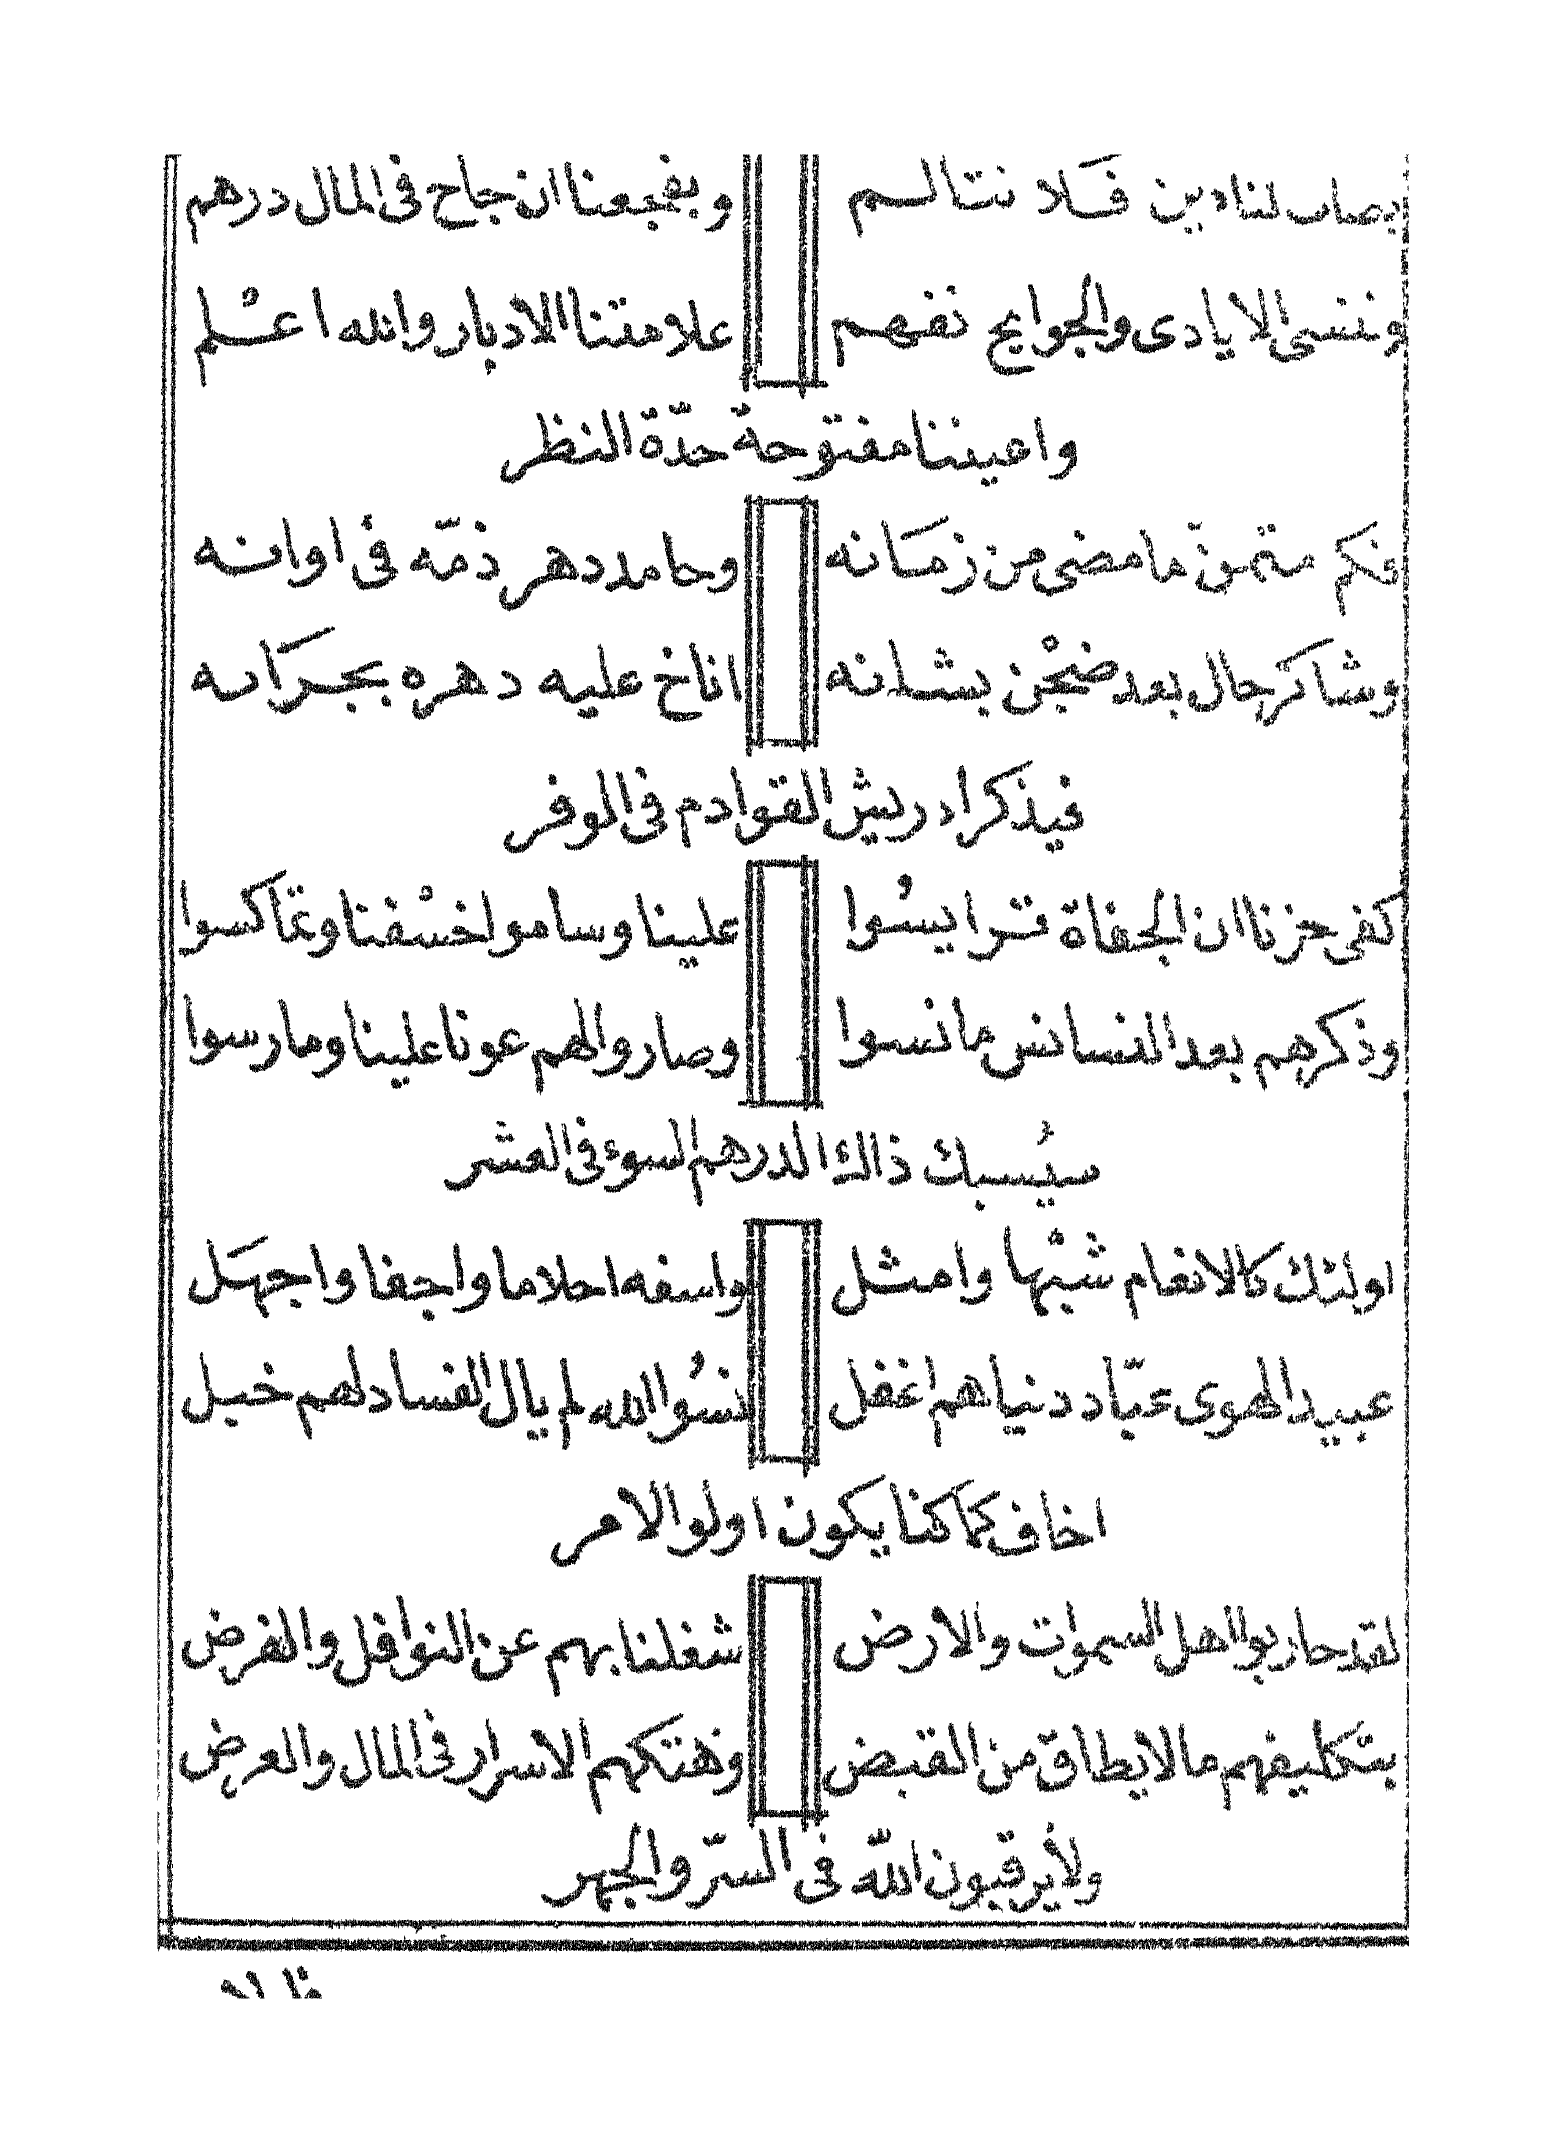 يصاب لنا دين فلا نتالم ويفجعنا ان جاح فى المال درهم
وننسى الايادى والجوايح نفهم علامتنا الادبار والله اعْلم
واعيننا مفتوحة حدّة النظر
فكم متمن ما مضى من زمانه وحامد دهر ذمّه فى اوانه
وشاكر حال بعد ضجْن بشانه اناخ عليه دهره بجرانه
فيذكر اد ريش القوادم فى الوفر
كفى حزنا ان الجفاة تراىسُوا علينا وساموا خسْفنا وتماكسوا
وذكرهم بعد النسانس ما نسوا وصاروا لهم عونا علينا ومارسوا
سيُسبك ذاك الدرهم السوء فى العشر
اولئك كالانعام شبْها وامثل واسفه احلاما واجفا واجهل
عبيد الهوى عبّاد دنياهم اغفل نسُوا الله لم يال الفساد لهم خبل
اخاف كما كنا يكون اولو الامر
لقد حاربوا اهل السموات والارض شغلنا بهم عن النوافل والفرض
بتكليفهم ما لا يطاق من القبض وهتكهم الاسرار فى المال والعرض
ولا يرقبون اللّه فى السرّ والجهر